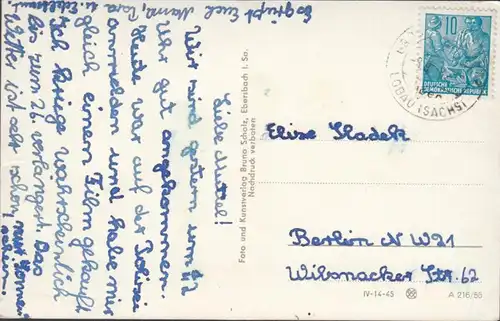 Liebe Muttel!
Wir sind gestern um 12
Uhr gut angekommen.
Heute war auf der Polizei
anmelden und habe mir
gleich einen Film gekauft
Ich kriege wahrscheinlich
bis zum 26. verlangert. Das
Wetter ist sehr schön,
Es grüßt Euch Manni, Papa u.
Foto und Kunstverlag Bruno Scholz, Ebersbach i. Sa.
Nachdruck verboten
10
DEUTSCHE
DEMOKRATISCHE REPUBLIK
LÖBAU (SACHS)
Elise Sladek
Berlin N W21
Wilsnacker Str. 62
IV-14-45
A 216/55